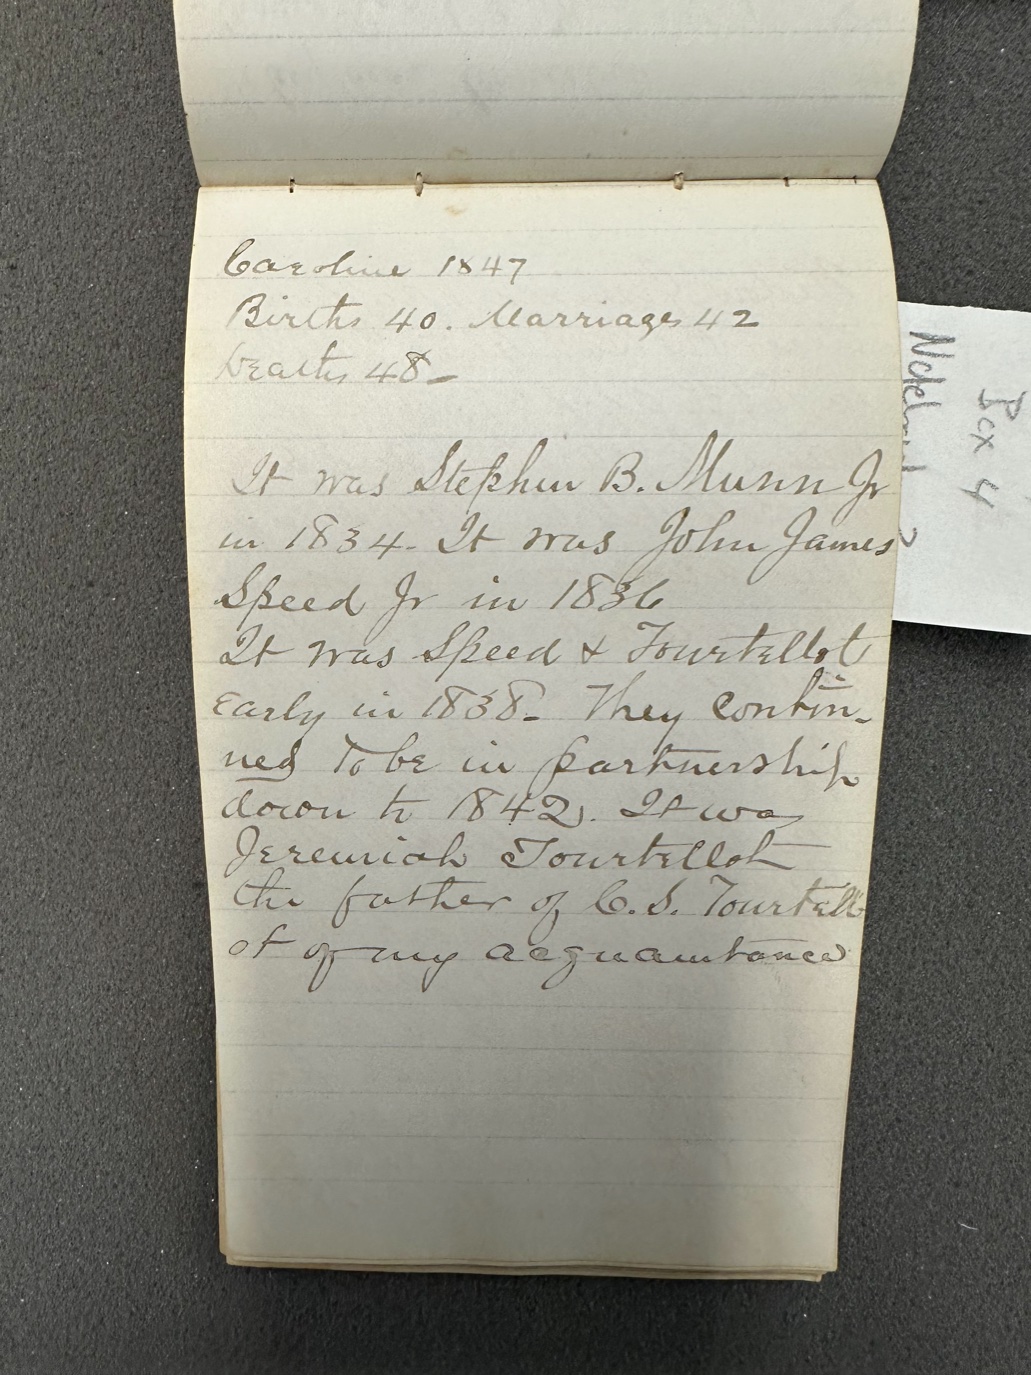 Caroline 1847
Births 40. Marriages 42
Deaths 48-
It was Stephen B. Munn Jr
in 1834. It was John James
Speed Jr in 1836
It was Speed & Tourtellot
Early in 1838- They contin-
ued to be in partnership
down to 1842. It was
Jeremiah Tourtellot
the father of C. S. Tourtell
ot of my acquaintance
Box 4